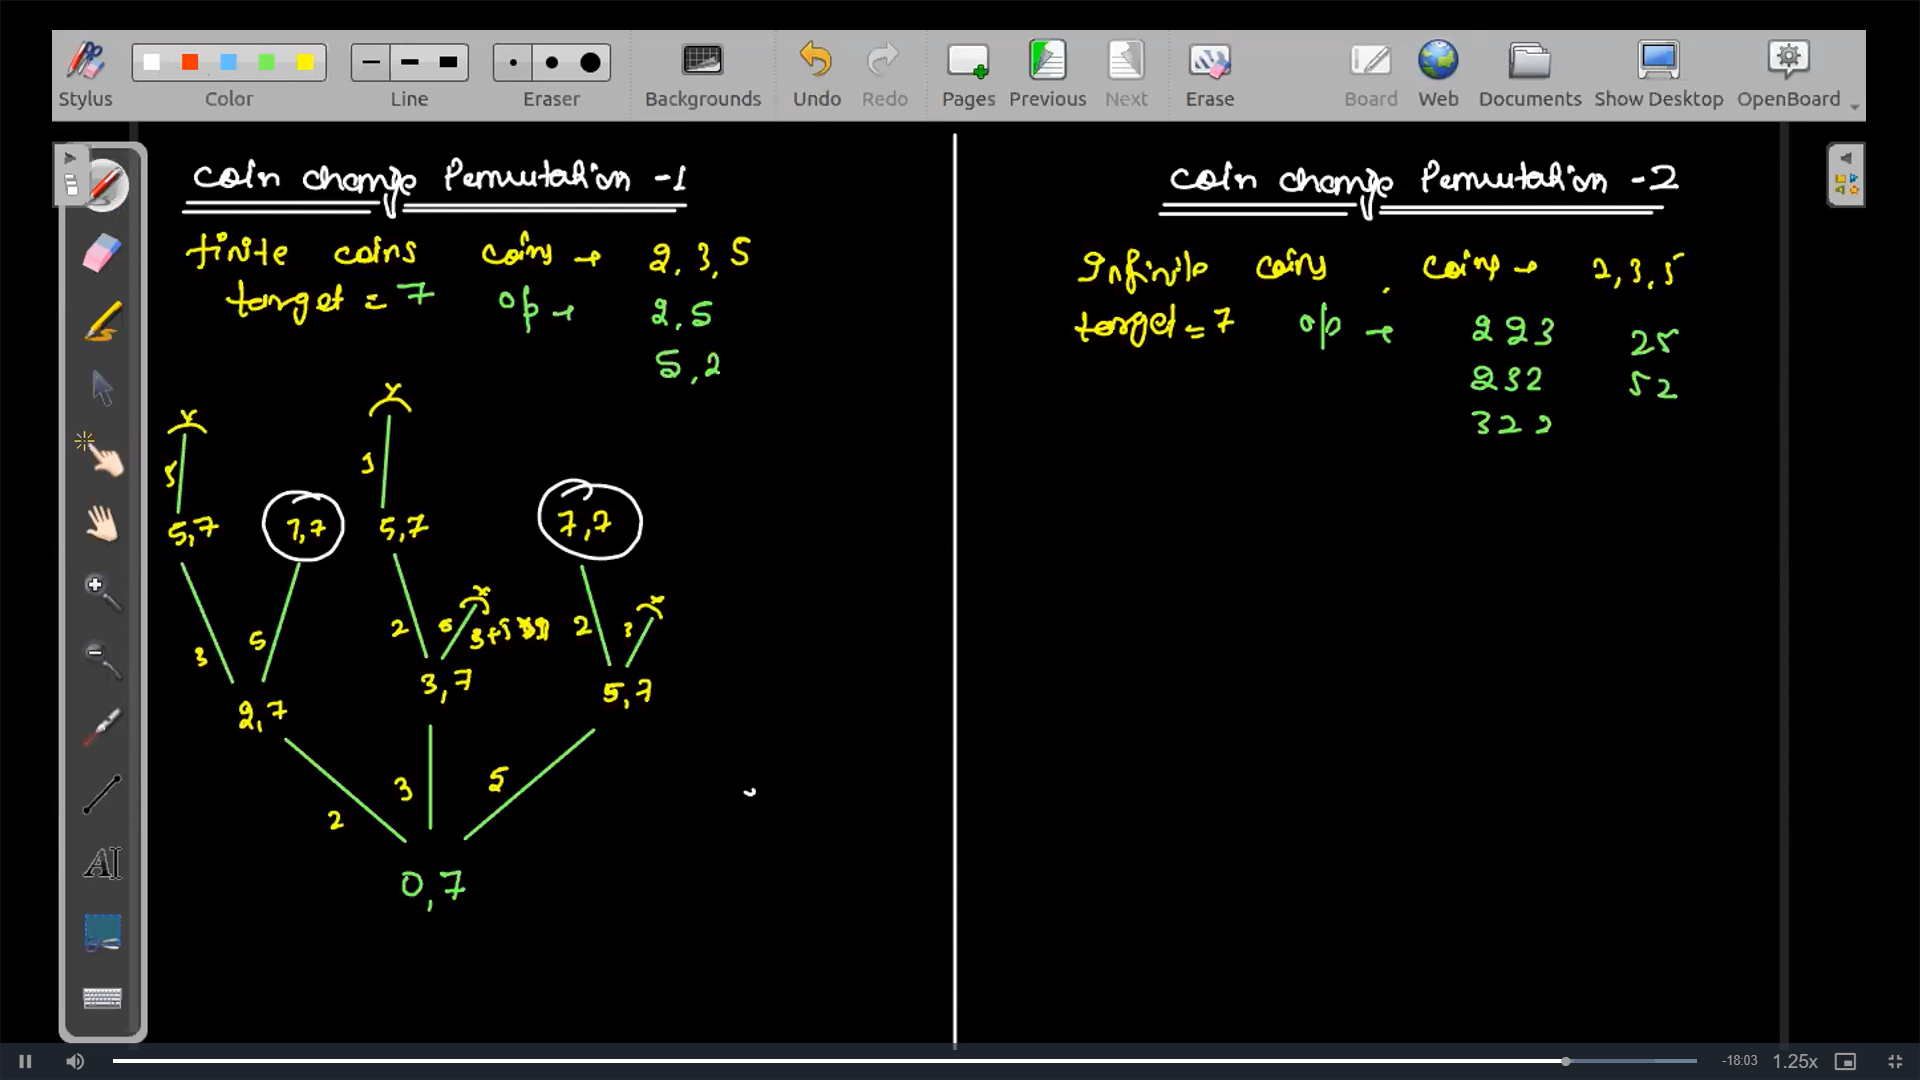 Stylus Color Line Eraser Backgrounds Undo Redo Pages Previous Next Erase Board Web Documents Show Desktop OpenBoard
coin change Permutation -1
finite coins coins → 2, 3, 5
target = 7 o/p → 2, 5
5, 2
x
x
5
5,7
7,7
5,7
7,7
x
x
3
5
2
5
3+5
2
3
2,7
3,7
5,7
2
3
5
0,7
coin change Permutation -2
Infinite coins, coins → 2,3,5
target = 7 o/p → 2 2 3 25
232 52
322
-18:03 1.25x